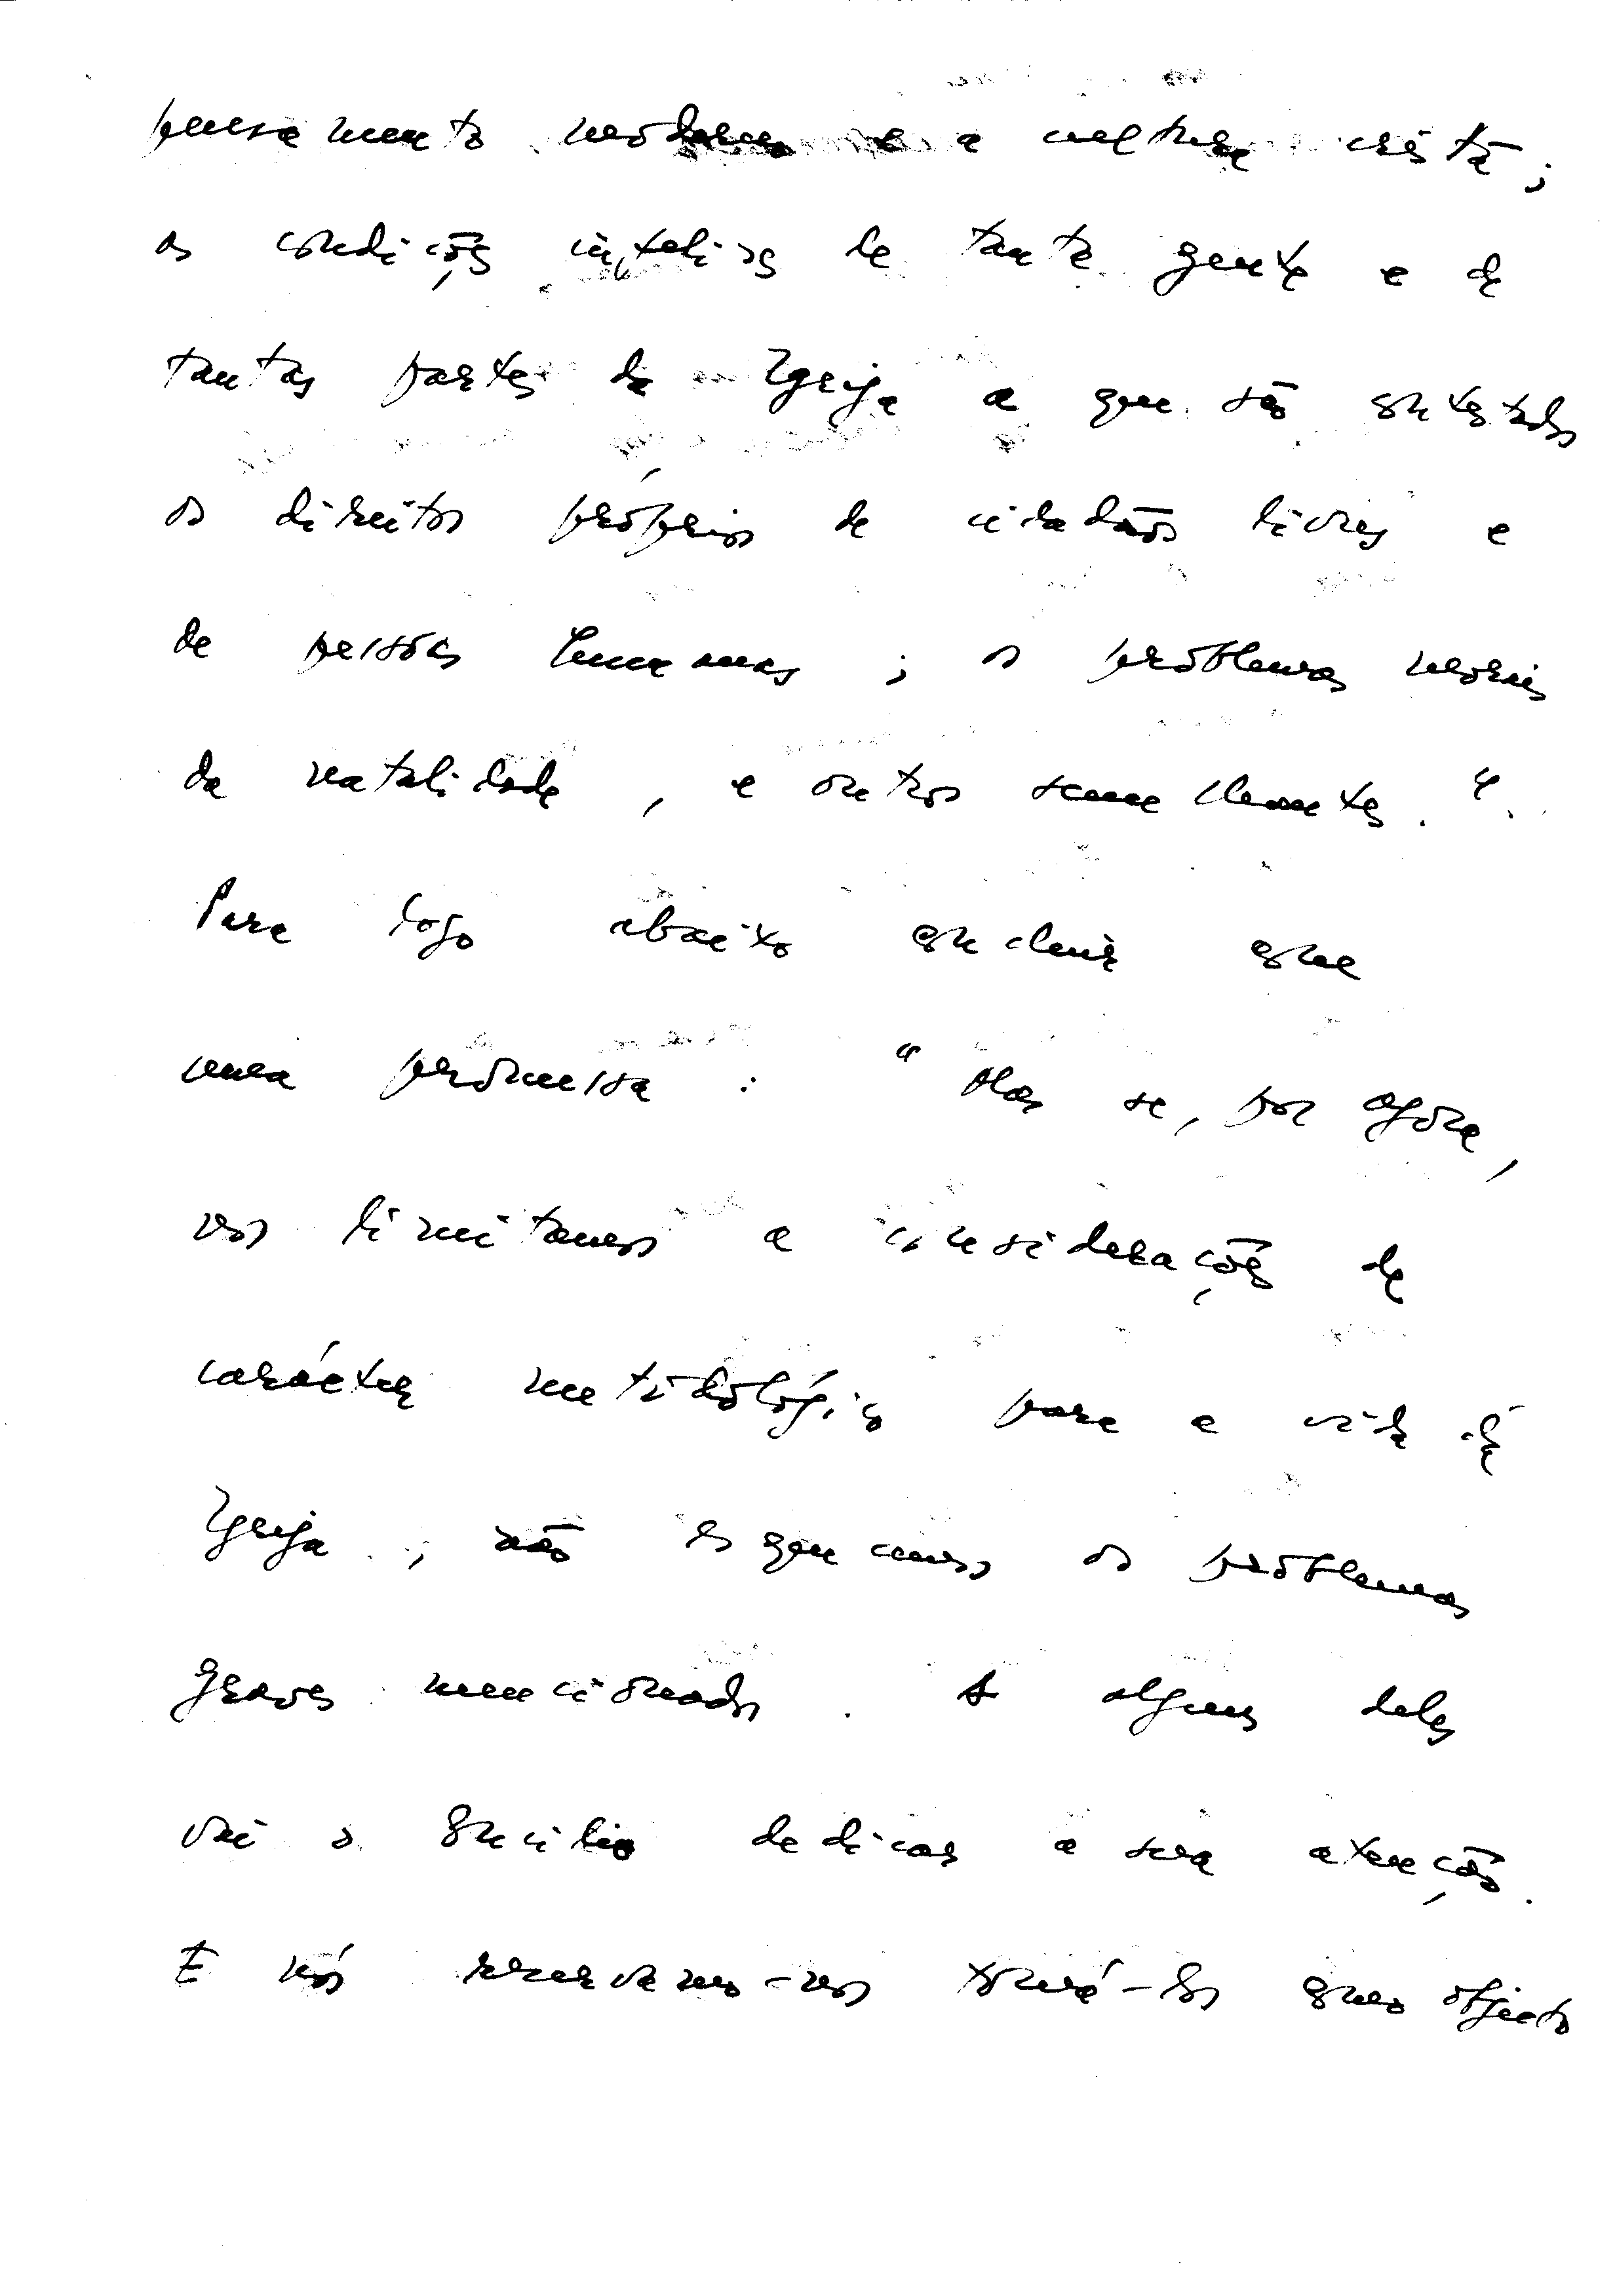 pensamento moderno e a cultura cristã;
as condições infelizes de tanta gente e de
tantas partes da Igreja a que são contestados
os direitos próprios de cidadãos livres e
de pessoas humanas; os problemas morais
da natalidade, e outros semelhantes."
Para logo abaixo concluir com
uma promessa: "Mas se, por agora,
nos limitamos a considerações de
carácter metodológico para a vida da
Igreja, não esquecemos os problemas
graves mencionados. A alguns deles
vai o Concílio dedicar a sua atenção.
E nós reservamo-nos tomá-los como objecto